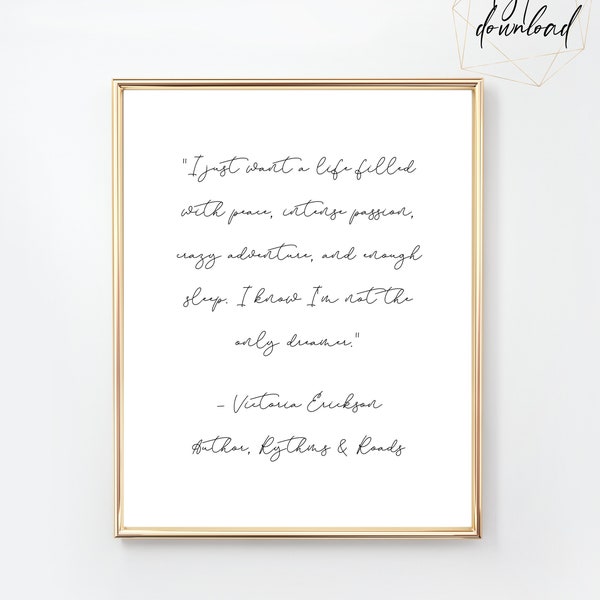 download
"I just want a life filled
with peace, intense passion,
crazy adventure, and enough
sleep. I know I'm not the
only dreamer."
- Victoria Erickson
Author, Rythms & Roads